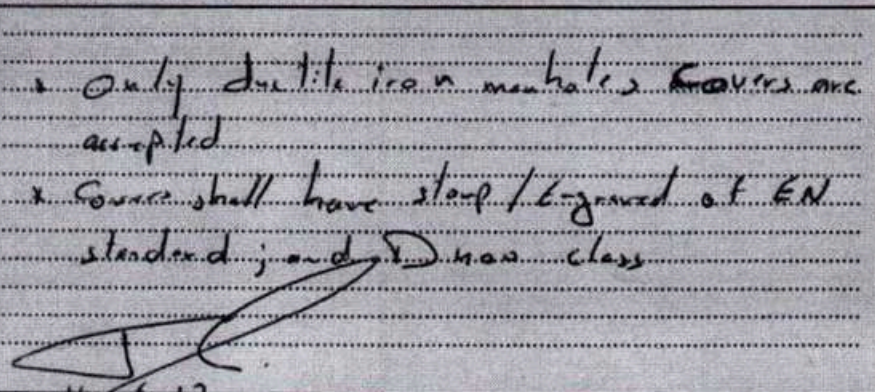 * Only ductile iron manholes covers are
accepted
* Covers shall have stamp / Engraved of EN
standard ; and D class